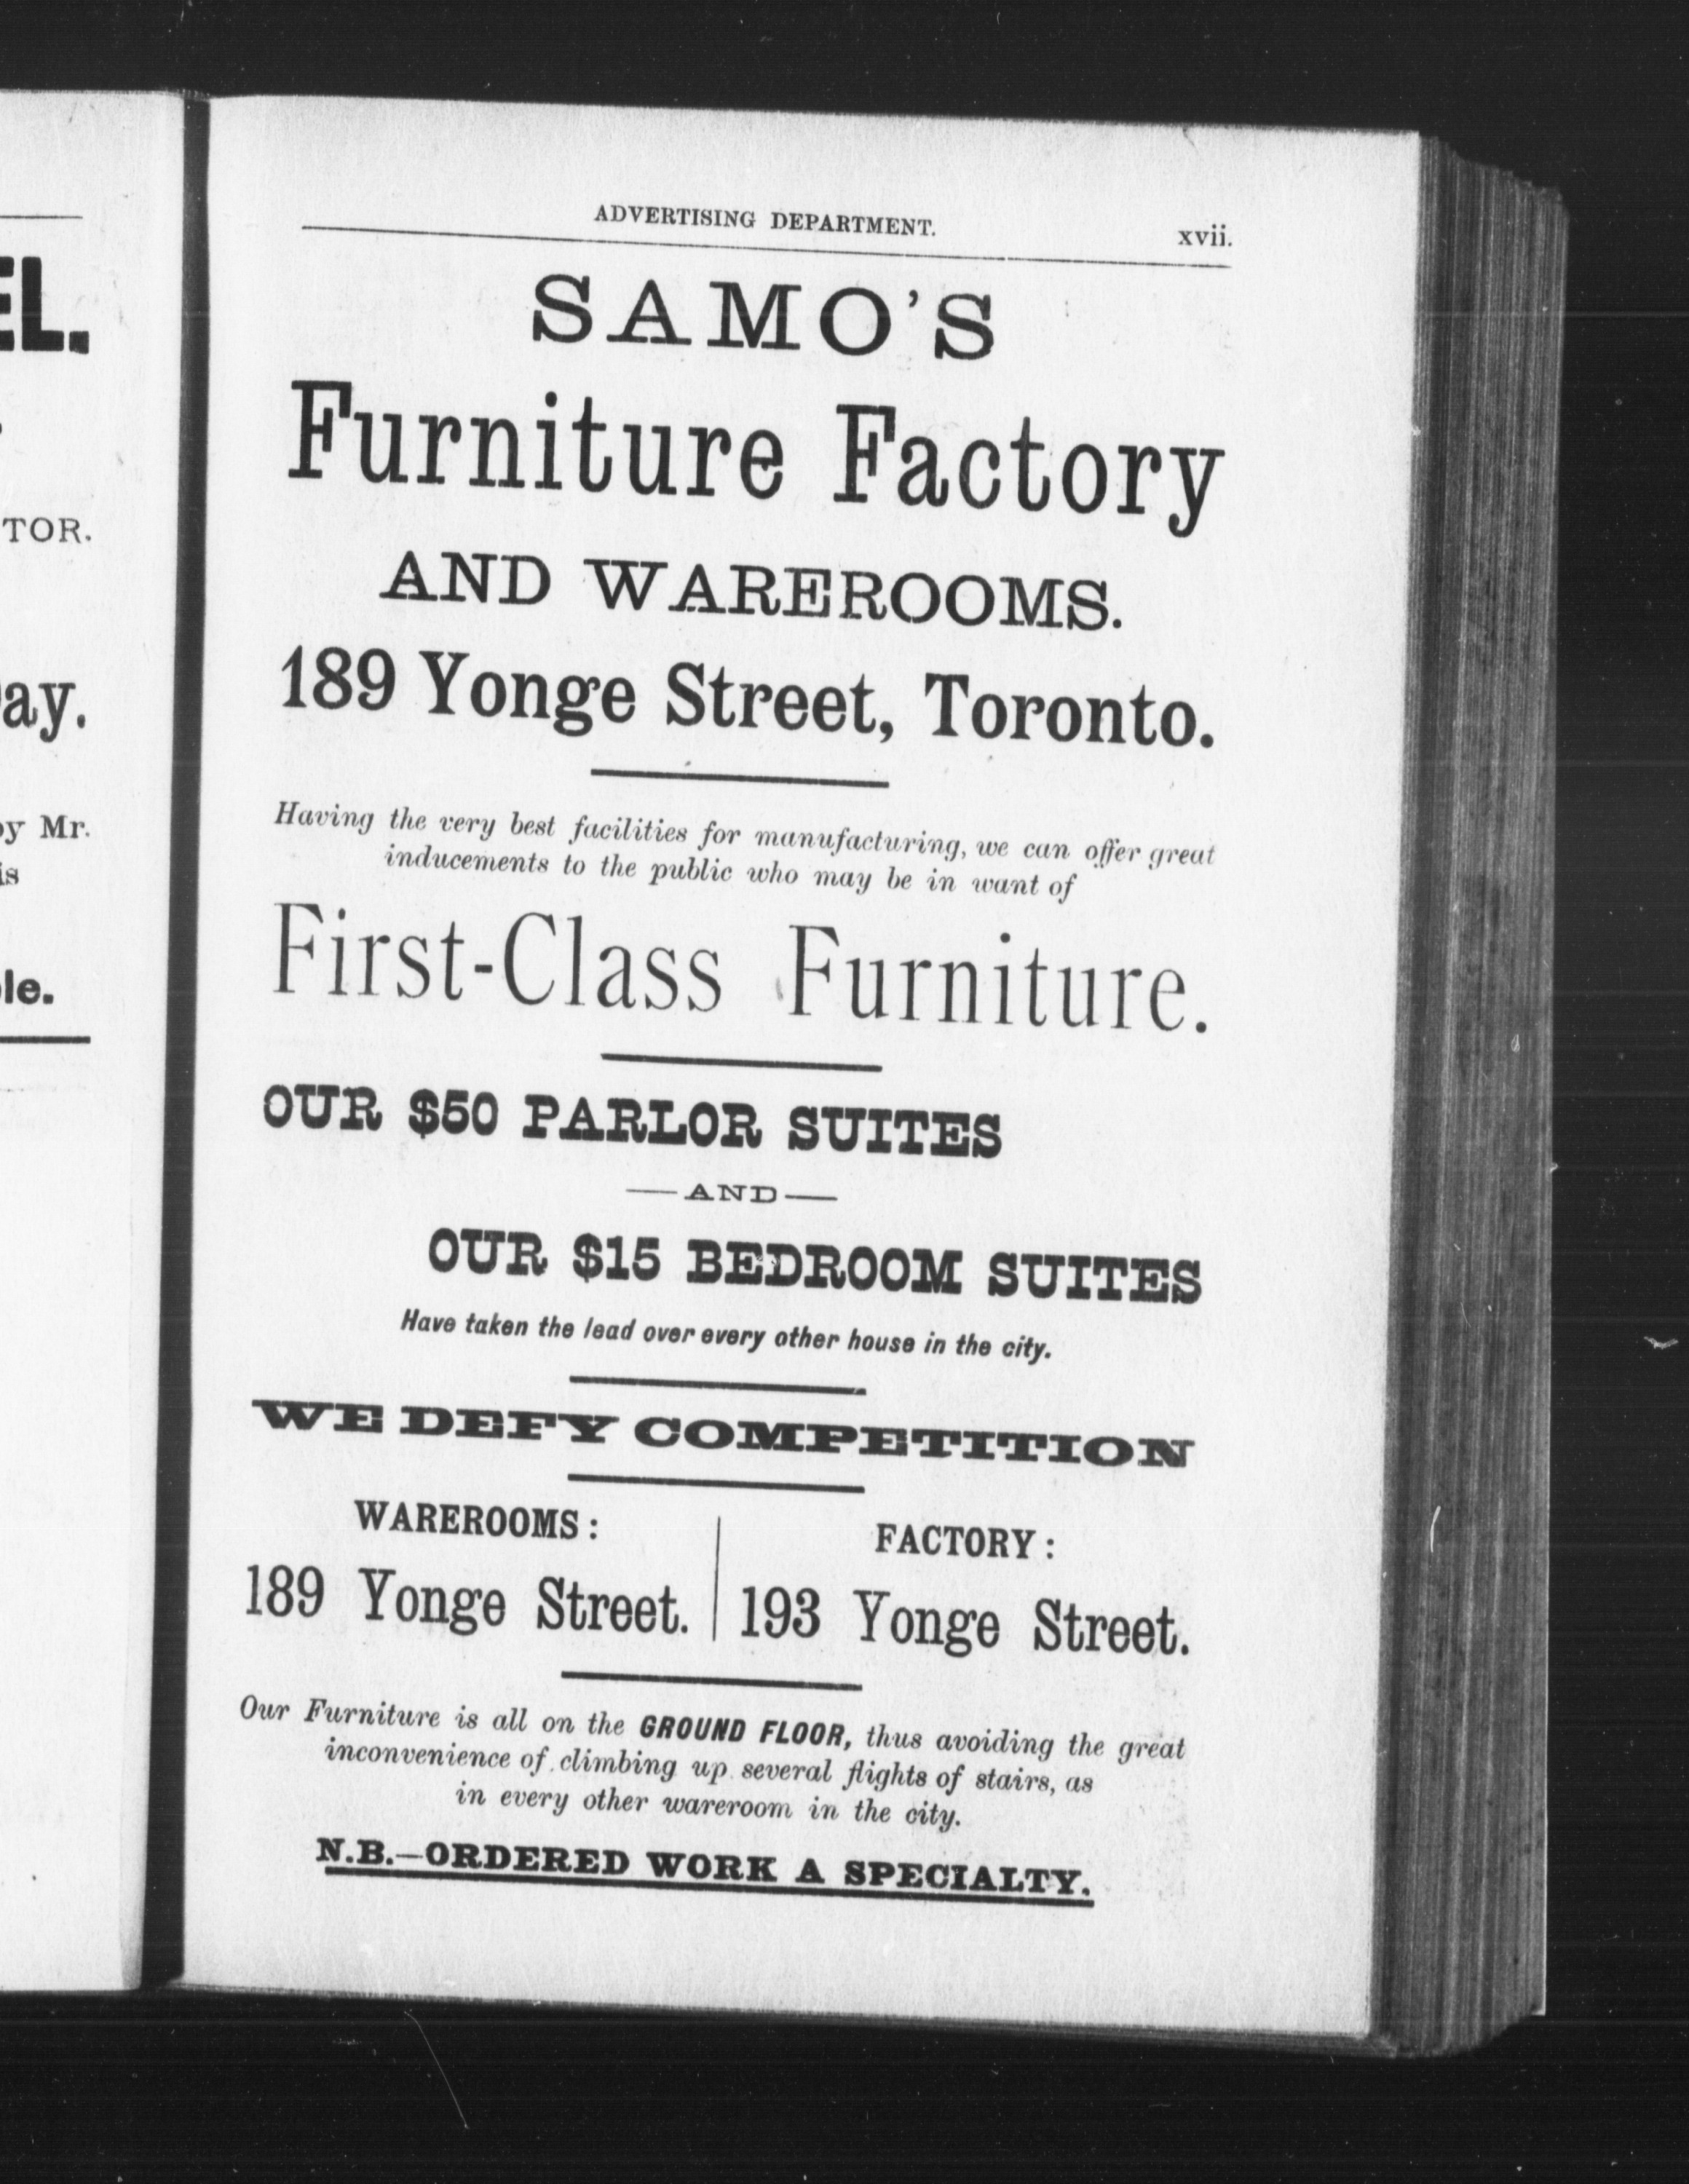 EL.
TOR.
ay.
by Mr.
is
le.
ADVERTISING DEPARTMENT. xvii.
SAMO'S
Furniture Factory
AND WAREROOMS.
189 Yonge Street, Toronto.
Having the very best facilities for manufacturing, we can offer great
inducements to the public who may be in want of
First-Class Furniture.
OUR $50 PARLOR SUITES
—AND—
OUR $15 BEDROOM SUITES
Have taken the lead over every other house in the city.
WE DEFY COMPETITION
WAREROOMS:
189 Yonge Street.
FACTORY:
193 Yonge Street.
Our Furniture is all on the GROUND FLOOR, thus avoiding the great
inconvenience of climbing up several flights of stairs, as
in every other wareroom in the city.
N.B.—ORDERED WORK A SPECIALTY.